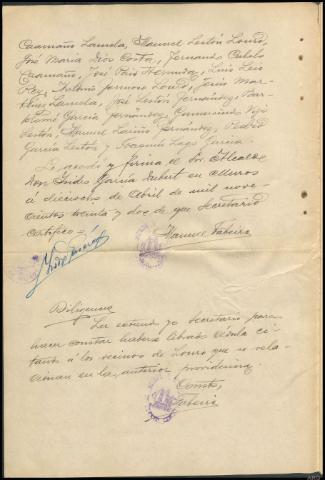 Caamaño Lamela, Manuel Lestón Louro,
José Maria Dios Costa, Fernando Cubelo
Caamaño, José París Hermida, Luis Leis
Rey, Antonio Louro, Jesús Mar-
tinez Lamela, José Lestón Fernández, Bar-
tolomé García Fernández, Gumersindo Vigo
Lestón, Manuel Lariño Fernández, Pedro
García Lestón y Joaquín Lago García.
Lo acordó y firma el Sr. Alcalde
Don Isidro García en Muros
á dieciocho de Abril de mil nove-
cientos treinta y dos de que Secretario
certifico =
Manuel Fabeiro
Diligencia
La extiendo yo Secretario para
hacer constar haberse librado cédula ci-
tando á los vecinos de Louro que se rela-
cionan en la anterior providencia.
Consto,
Fabeiro